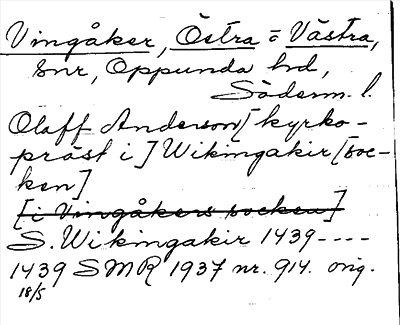 Vingåker, Östra o Västra,
snr, Oppunda hd,
Söderm. l.
Olaff Anderson [kyrko-
präst i] Wikingakir [soc-
ken]
[i Vingåkers socken]
S. Wikingakir 1439----
1439 SMR 1937 nr. 914. orig.
18/5